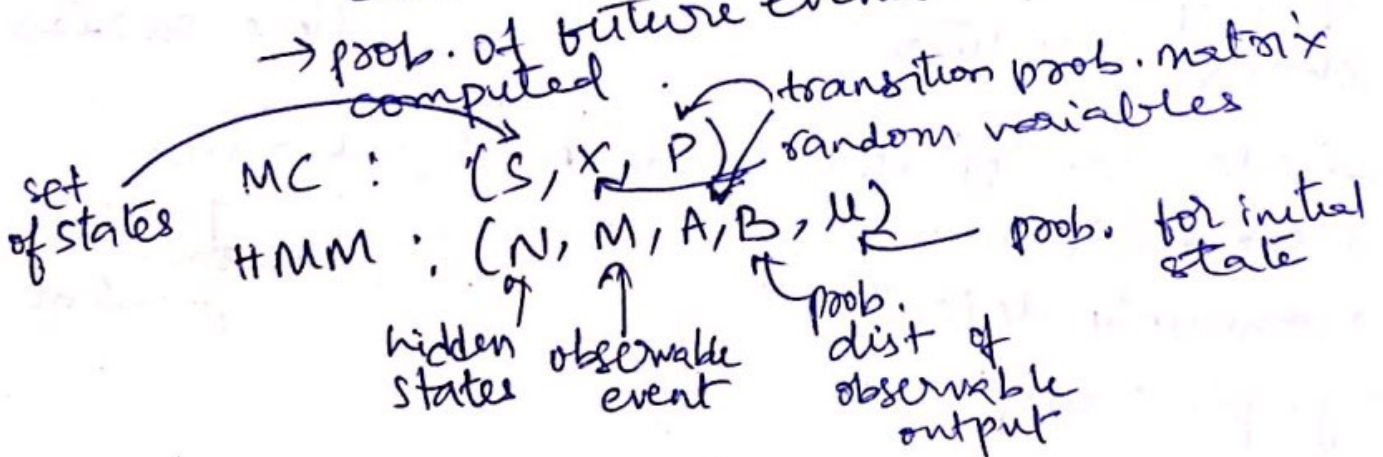 → prob. of future
computed
transition prob. matrix
random variables
set
of states
MC : (S, X, P)
HMM : (N, M, A, B, μ)
prob. for initial
state
hidden
states
observable
event
prob.
dist of
observable
output